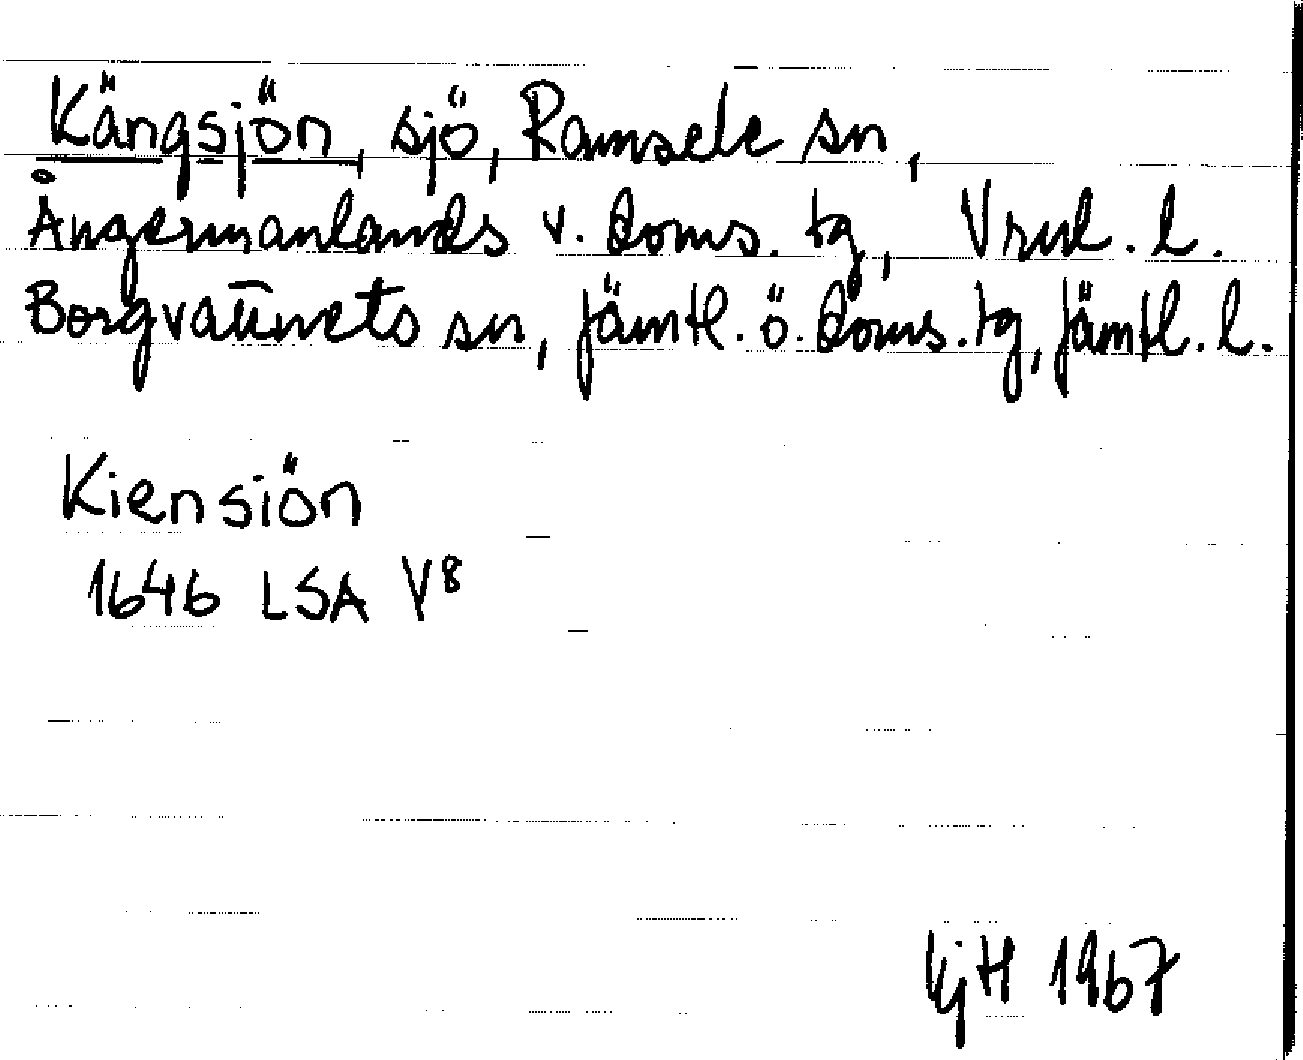 Kängsjön, sjö, Ramsele sn,
Ångermanlands v. doms. tg, Vrnl. l.
Borgvattnets sn, Jämtl. ö. doms. tg, Jämtl. l.
Kiensiön
1646 LSA V8
KjH 1967